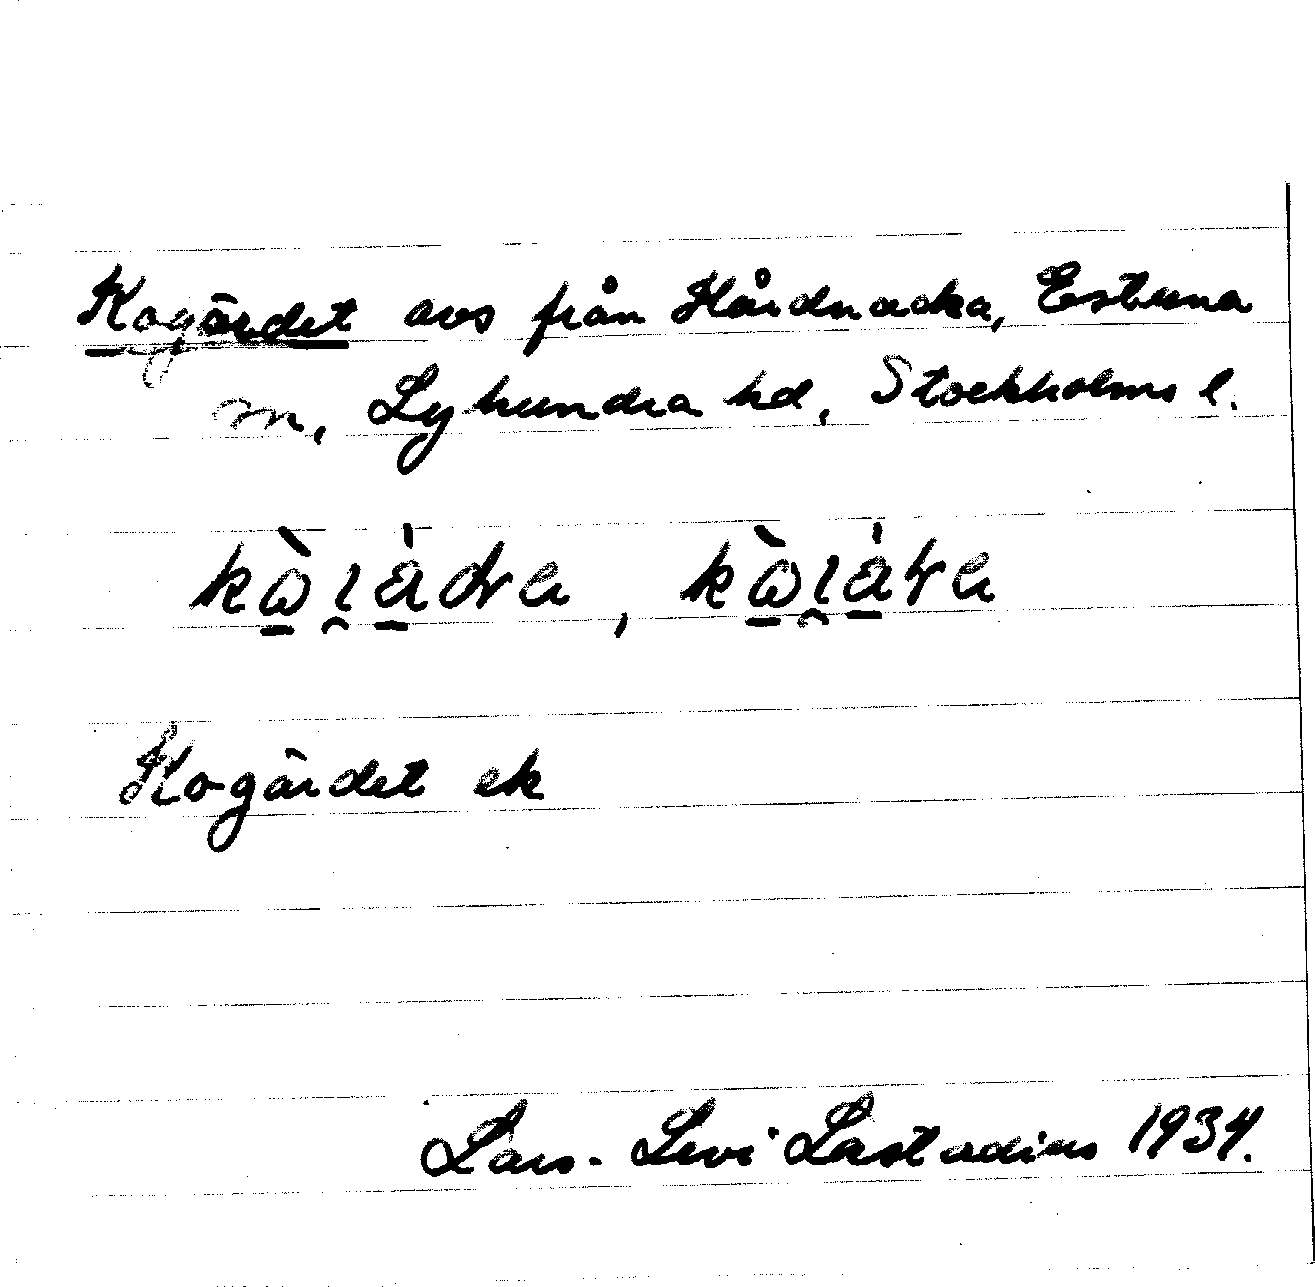 Kogärdet avs från Hårdnacka, Estuna
sn, Lyhundra hd, Stockholms l.
kòɩàdve, kòɩàve
Kogärdet ek
Lars-Levi Læstadius 1934.